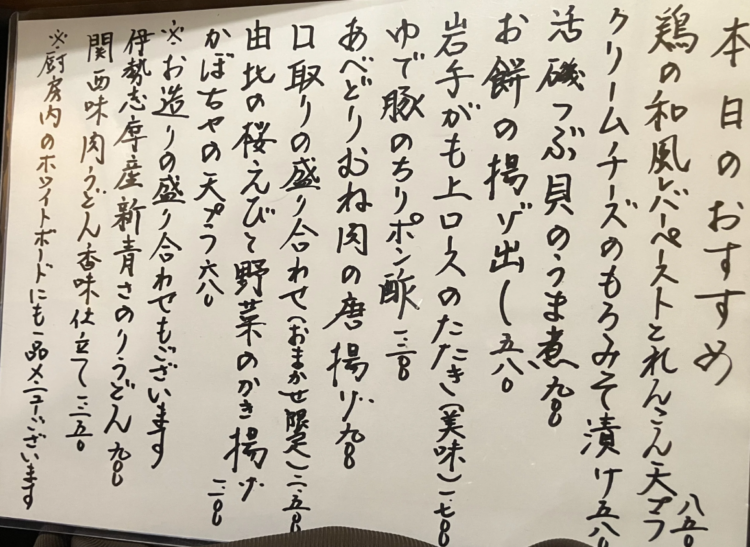 本日のおすすめ
鶏の和風レバーペーストとれんこん天プラ 八五〇
クリームチーズのもろみそ漬け 五八〇
活磯つぶ貝のうま煮 九八〇
お餅の揚げ出し 五八〇
岩手がも上ロースのたたき(美味)一、七八〇
ゆで豚のちりポン酢
あべどりむね肉の唐揚げ 九八〇
口取りの盛り合わせ(おまかせ限定)
由比の桜えびと野菜のかき揚げ
かぼちゃの天プラ 六八〇
※お造りの盛り合わせもございます
伊勢志摩産新青さのりうどん 九八〇
関西味肉うどん香味仕立て
※厨房内のホワイトボードにも一品メニューございます